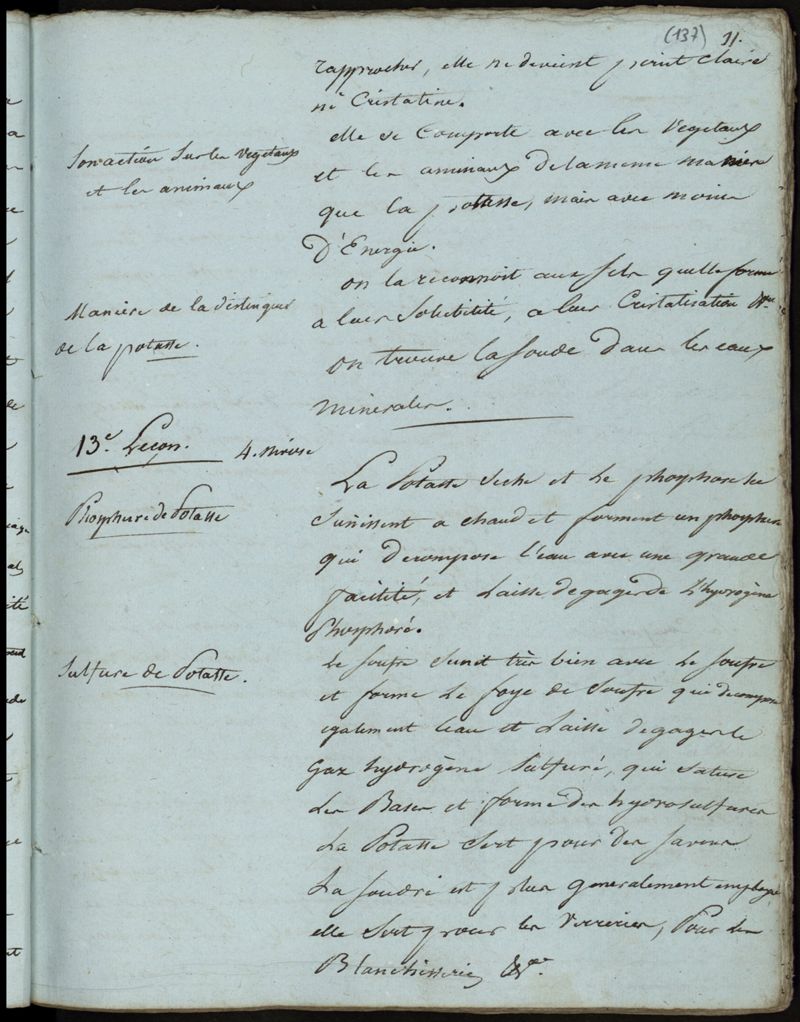 (137) 11.
rapprocher, elle ne devient point claire
ni Cristaline.
Son action Sur les vegetaux
et les animaux
elle se Comporte avec les Vegetaux
et les animaux de la meme maniere
que la potasse, mais avec moins
D'Energie.
Maniere de la distinguer
de la potasse.
on la reconnoit aux Sels quelle forme
a leur Solubilité, a leur Cristalisation &a.
on trouve la Soude Dans les eaux
minerales.
13e Leçon. 4. nivose
Phosphure de Potasse
La Potasse Seche et le phosphore
S'unissent a chaud et forment un phosphure
qui decompose l'eau avec une grande
facilité, et Laisse degager de L'hydrogène
Phosphoré.
Sulfure de Potasse.
Le Soufre S'unit très bien avec Le Soufre
et forme Le foye de Soufre qui decompose
egalement l'eau et Laisse degager le
Gaz hydrogène Sulfuré, qui Sature
Les Bases et forme des hydrosulfures
La Potasse Sert pour des Savons
La Soude est plus generalement employé
elle Sert pour les Verreries, Pour Les
Blanchisseries &a.